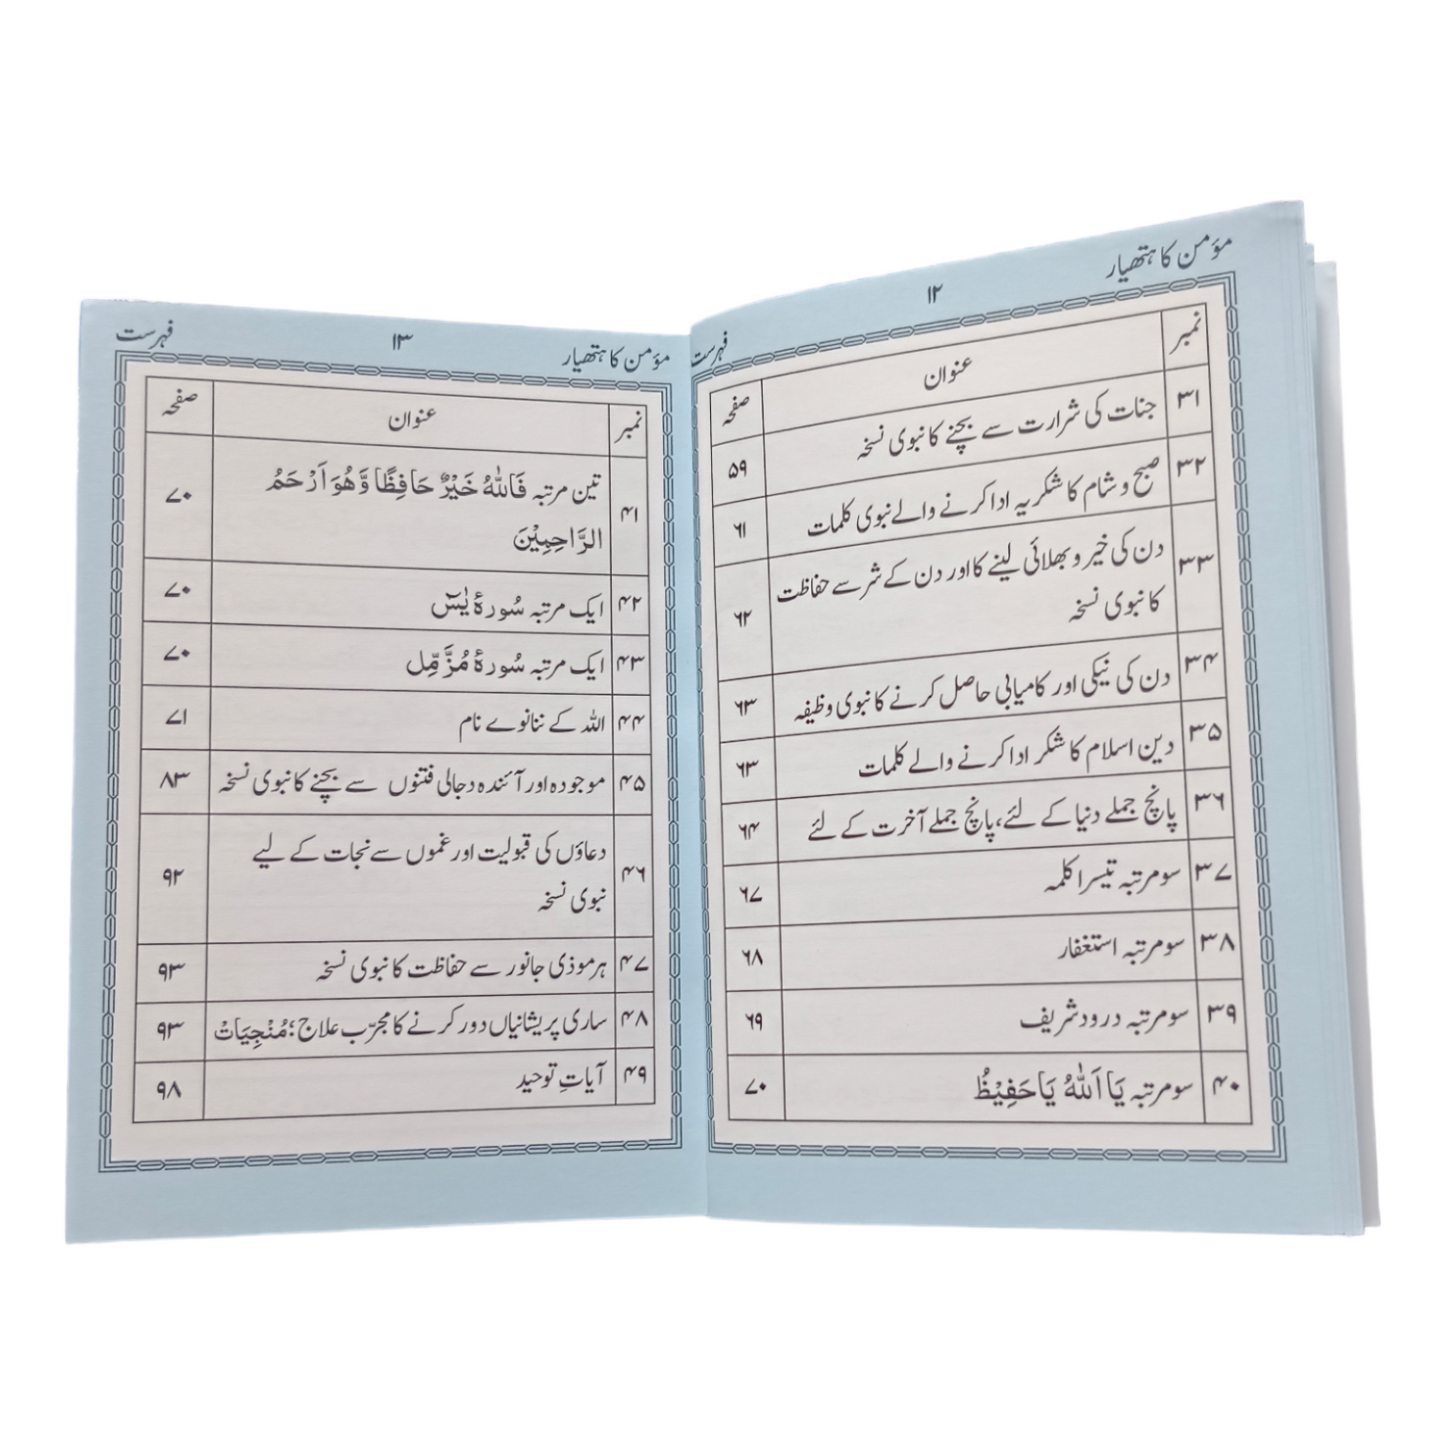 مؤمن کا ہتھیار ۱۲ فہرست
نمبر عنوان صفحہ
۳۱ جنات کی شرارت سے بچنے کا نبوی نسخہ ۵۹
۳۲ صبح و شام کا شکریہ ادا کرنے والے نبوی کلمات ۶۱
۳۳ دن کی خیر و بھلائی لینے کا اور دن کے شر سے حفاظت
کا نبوی نسخہ ۶۲
۳۴ دن کی نیکی اور کامیابی حاصل کرنے کا نبوی وظیفہ ۶۳
۳۵ دین اسلام کا شکر ادا کرنے والے کلمات ۶۳
۳۶ پانچ جملے دنیا کے لئے، پانچ جملے آخرت کے لئے ۶۴
۳۷ سو مرتبہ تیسرا کلمہ ۶۷
۳۸ سو مرتبہ استغفار ۶۸
۳۹ سو مرتبہ درود شریف ۶۹
۴۰ سو مرتبہ يَا اَللّٰهُ يَا حَفِيْظُ ۷۰
مؤمن کا ہتھیار ۱۳ فہرست
نمبر عنوان صفحہ
۴۱ تین مرتبہ فَاللّٰهُ خَيْرٌ حَافِظًا وَّهُوَ اَرْحَمُ
الرَّاحِمِيْنَ ۷۰
۴۲ ایک مرتبہ سُورۂ یٰسٓ ۷۰
۴۳ ایک مرتبہ سُورۂ مُزَّمِّل ۷۰
۴۴ اللہ کے ننانوے نام ۷۱
۴۵ موجودہ اور آئندہ دجالی فتنوں سے بچنے کا نبوی نسخہ ۸۳
۴۶ دعاؤں کی قبولیت اور غموں سے نجات کے لیے
نبوی نسخہ ۹۲
۴۷ ہر موذی جانور سے حفاظت کا نبوی نسخہ ۹۳
۴۸ ساری پریشانیاں دور کرنے کا مجرّب علاج؛ مُنْجِيَاتْ ۹۳
۴۹ آیاتِ توحید ۹۸